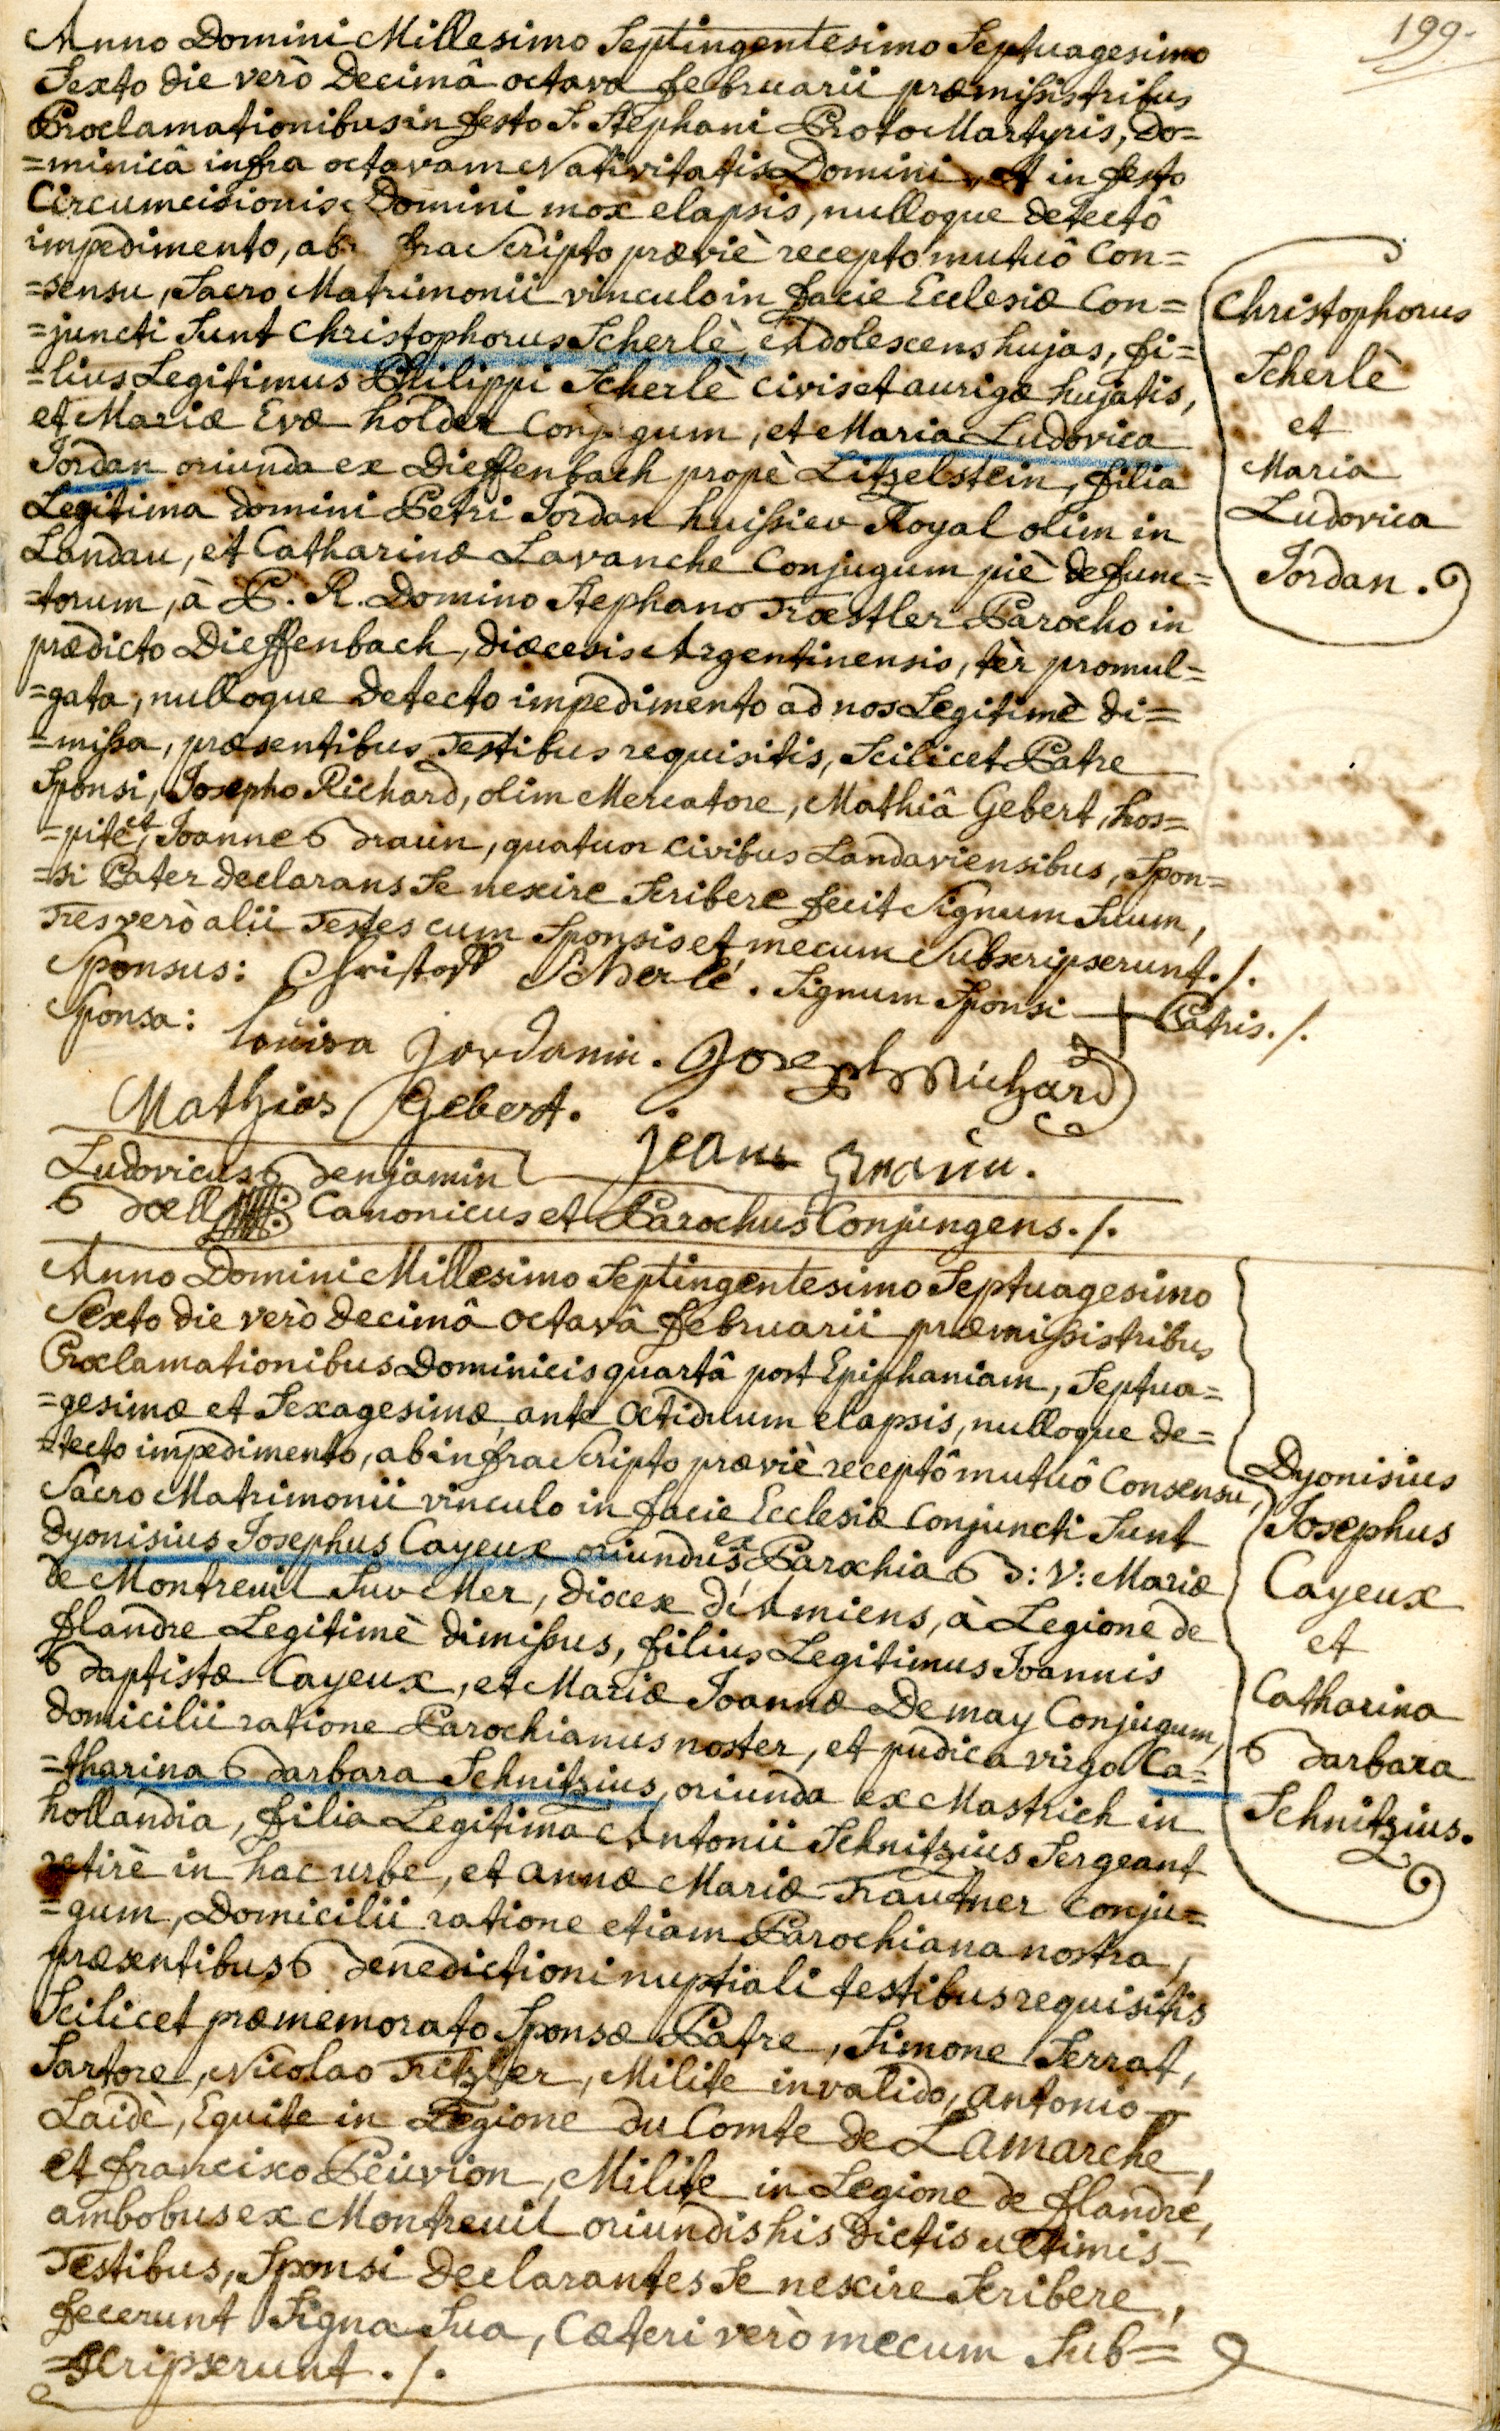 199.
Anno Domini Millesimo Septingentesimo Septuagesimo
Sexto die verò Decimâ octava februarii præmissis tribus
Proclamationibus in festo S. Stephani Proto Martyris, Do=
=minicâ infra octavam Nativitatis Domini, et in festo
Circumcisionis Domini mox elapsis, nulloque detectô
impedimento, ab fra Scripto præviè recepto mutuô Con=
=sensu, Sacro Matrimonii vinculo in facie Ecclesiæ Con=
=juncti Sunt Christophorus Scherlè, Adolescens hujas, fi=
=lius Legitimus Philippi Scherlè civis et aurigæ hujatis,
et Mariæ Evæ holder Conjugum, et Maria Ludovica
Jordan oriunda ex Dieffenbach propè Litzelstein, filia
Legitima Domini Petri Jordan huissier Royal olim in
Landau, et Catharinæ Lavanche Conjugum piè defunc=
=torum, à P. R. Domino Stephano Troestler Parocho in
prædicto Dieffenbach, Diæcesis Argentinensis, tèr promul=
=gata, nulloque detecto impedimento ad nos Legitimè di=
=missa, præsentibus Testibus requisitis, Scilicet Patre
Sponsi, Josepho Richard, olim Mercatore, Mathiâ Gebert, hos=
=pite, et Joanne Braun, quatuor civibus Landaviensibus, Spon=
=si Pater declarans Se nescire Scribere fecit Signum Suum,
Tres verò alii Testes cum Sponsis et mecum Subscripserunt ./.
Sponsus: Christoph Scherlé. Signum Sponsi + Patris ./.
Sponsa: louisa Jordanin. Joseph Richard
Mathias Gebert.
jean Braun.
Ludovicus Benjamin
Boell Canonicus et Parochus Conjungens ./.
Christophorus
Scherlè
et
Maria
Ludovica
Jordan.
Anno Domini Millesimo Septingentesimo Septuagesimo
Sexto die verò decimâ octavâ februarii præmissis tribus
Proclamationibus Dominicis quartâ post Epiphaniam, Septua=
=gesimæ et Sexagesimæ ante octiduum elapsis, nulloque de=
=tecto impedimento, ab infra Scripto præviè receptô mutuô Consensu,
Sacro Matrimonii vinculo in facie Ecclesiæ Conjuncti Sunt
Dyonisius Josephus Cayeux oriundus ex Parochia B: V: Mariæ
de Montreuil Sur Mer, diocex d'Amiens, à Legione de
flandre Legitimè dimissus, filius Legitimus Joannis
Baptistæ Cayeux, et Mariæ Joannæ Demay Conjugum,
domicilii ratione Parochianus noster, et pudica virgo Ca=
=tharina Barbara Schnitzius, oriunda ex Mastrich in
hollandia, filia Legitima Antonii Schnitzius Sergeant
retirè in hac urbe, et annæ Mariæ Trautner conju=
=gum, Domicilii ratione etiam Parochiana nostra,
præsentibus Benedictioni nuptiali testibus requisitis
Scilicet præmemorato Sponsæ Patre, Simone Serrat,
Sartore, Nicolao Tritzler, Milite invalido, antonio
Laidè, Equite in Legione du Comte de Lamarche,
et francisco Peuvion, Milite in Legione de flandre,
ambobus ex Montreuil oriundis his dictis ultimis
Testibus, Sponsi declarantes Se nescire Scribere,
fecerunt Signa Sua, Cæteri verò mecum Sub=
=scripserunt ./.
Dyonisius
Josephus
Cayeux
et
Catharina
Barbara
Schnitzius.